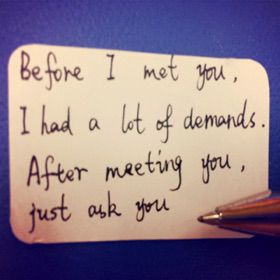 Before I met you,
I had a lot of demands.
After meeting you,
just ask you